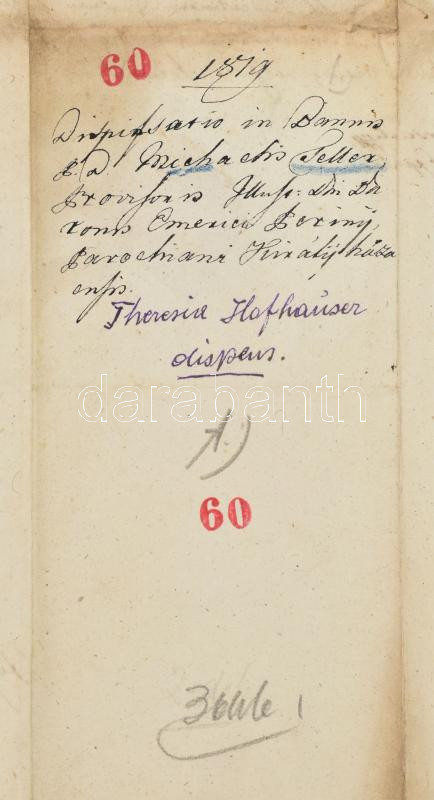 60
1819
Dispensatio in Bannis
P. D. Michaelis Seller,
Provisoris Illust: Dni Ba
ronis Emerici Periny,
Parochiani Királyháza
ensis.
Theresia Hofhauser
dispens.
darabanth
60